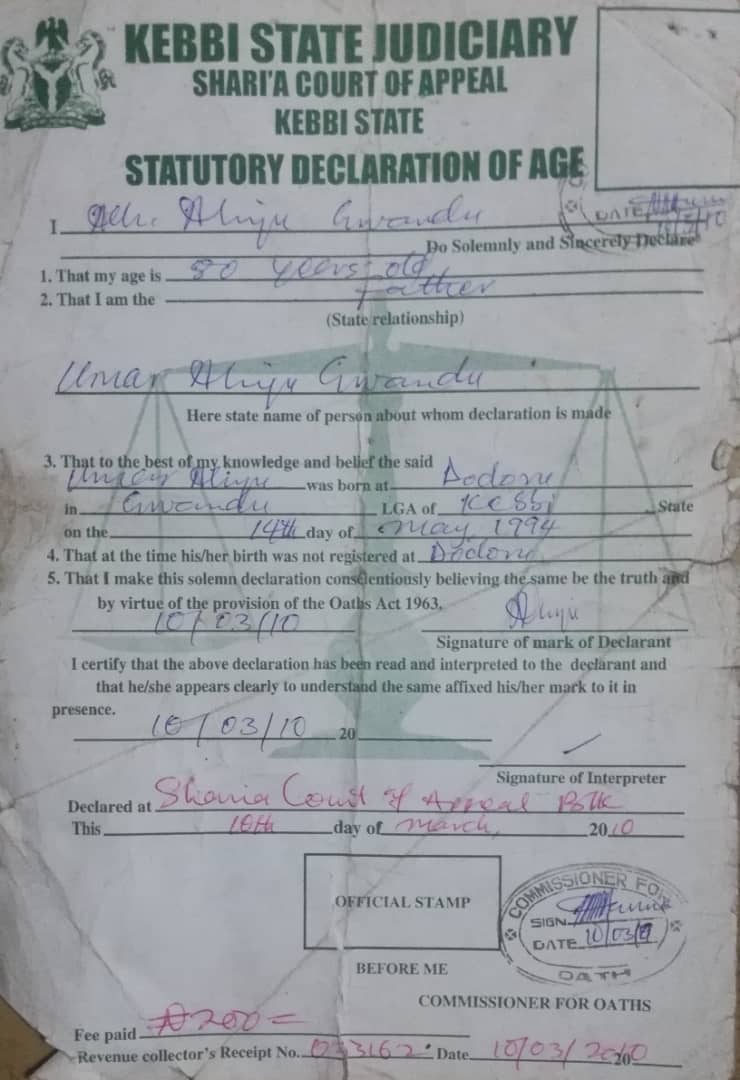 KEBBI STATE JUDICIARY
SHARI'A COURT OF APPEAL
KEBBI STATE
STATUTORY DECLARATION OF AGE
DATE
I Alh. Aliyu Gwandu
Do Solemnly and Sincerely Declare
1. That my age is 80 years old
2. That I am the Father
(State relationship)
Umar Aliyu Gwandu
Here state name of person about whom declaration is made
3. That to the best of my knowledge and belief the said
Umar Aliyu was born at Dodoru
in Gwandu LGA of Kebbi State
on the 14th day of May, 1994
4. That at the time his/her birth was not registered at Dodoru
5. That I make this solemn declaration conscientiously believing the same be the truth and
by virtue of the provision of the Oaths Act 1963.
10/03/10 Aliyu
Signature of mark of Declarant
I certify that the above declaration has been read and interpreted to the declarant and
that he/she appears clearly to understand the same affixed his/her mark to it in
presence.
10/03/10 20
Signature of Interpreter
Declared at Sharia Court of Appeal B/K
This 10th day of March, 2010
OFFICIAL STAMP
COMMISSIONER FOR
SIGN
DATE 10/03/
OATH
BEFORE ME
COMMISSIONER FOR OATHS
Fee paid ₦200=
Revenue collector's Receipt No. 033162 Date 10/03/2010